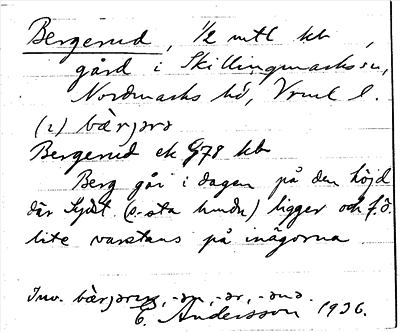 Bergerud, 1/2 mtl kb,
gård i Skillingmarks sn,
Nordmarks hd, Vrml l.
(1) bærjərə
Bergerud ek G78 kb
Berg går i dagen på den höjd
där (e-sta hundr) ligger och f.ö.
lite varstans på inägorna
Inv. bærjərin, -ən, -ər, -ənə.
E. Andersson 1936.